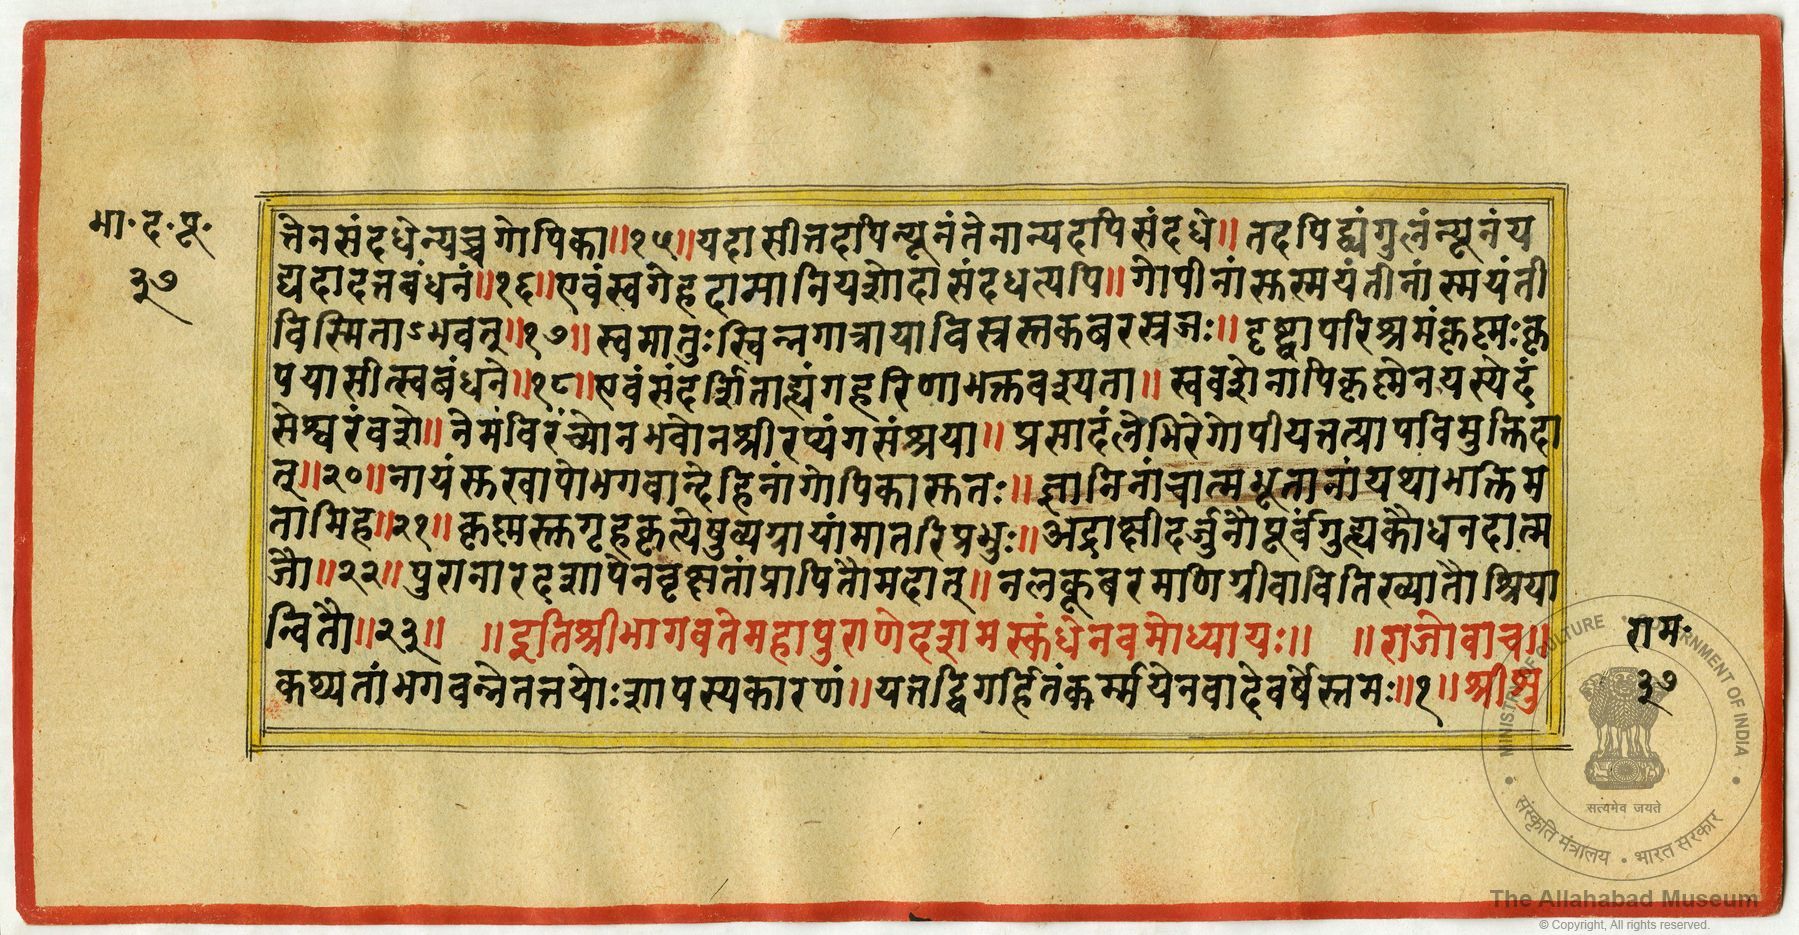 भा॰द॰पू॰
३७
त्तेनसंदधेन्यच्चगोपिका॥१५॥यदासीत्तदपिन्यूनंतेनान्यदपिसंदधे॥तदपिद्व्यंगुलंन्यूनंय
द्यदादत्तबंधनं॥१६॥एवंस्वगेहदामानियशोदासंदधत्यपि॥गोपीनांस्तस्मयंतीनांस्मयंती
विस्मिताऽभवत्॥१७॥स्वमातुःस्विन्नगात्रायाविस्रस्तकबरस्रजः॥दृष्ट्वापरिश्रमंकृष्णःकृ
पयासीत्स्वबंधने॥१८॥एवंसंदर्शिताह्यंगहरिणाभक्तवश्यता॥स्ववशेनापिकृष्णेनयस्येदं
सेश्वरंवशे॥नेमंविरंच्योनभवोनश्रीरप्यंगसंश्रया॥प्रसादंलेभिरेगोपीयत्तत्प्रापविमुक्तिदा
त्॥२०॥नायंस्तखापोभगवान्देहिनांगोपिकास्ततः॥ज्ञानिनांचात्मभूतानांयथाभक्तिम
तामिह॥२१॥कृष्णस्तगृहकृत्येषुव्यग्रायांमातरिप्रभुः॥अद्राक्षीदर्जुनौपूर्वंगुह्यकौधनदात्म
जौ॥२२॥पुरानारदशापेनवृक्षतांप्रापितौमदात्॥नलकूबरमणिग्रीवावितिख्यातौश्रिया
न्वितौ॥२३॥ ॥इतिश्रीभागवतेमहापुराणेदशमस्कंधेनवमोध्यायः॥ ॥राजोवाच॥
कथ्यतांभगवन्नेतत्तयोःशापस्यकारणं॥यत्तद्विगर्हितंकर्म्मयेनवादेवर्षेस्तमः॥१॥श्रीशु
राम॰
३७
MINISTRY OF CULTURE • GOVERNMENT OF INDIA
सत्यमेव जयते
संस्कृति मंत्रालय • भारत सरकार
The Allahabad Museum
© Copyright, All rights reserved.